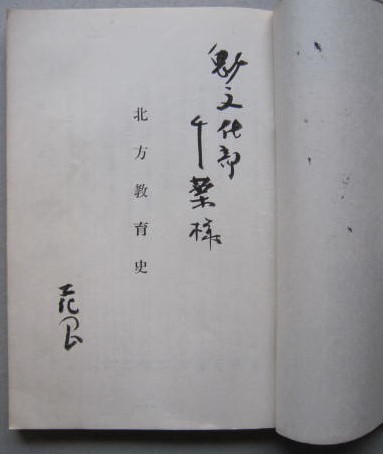 魁文化部
千葉様
北方教育史
花岡